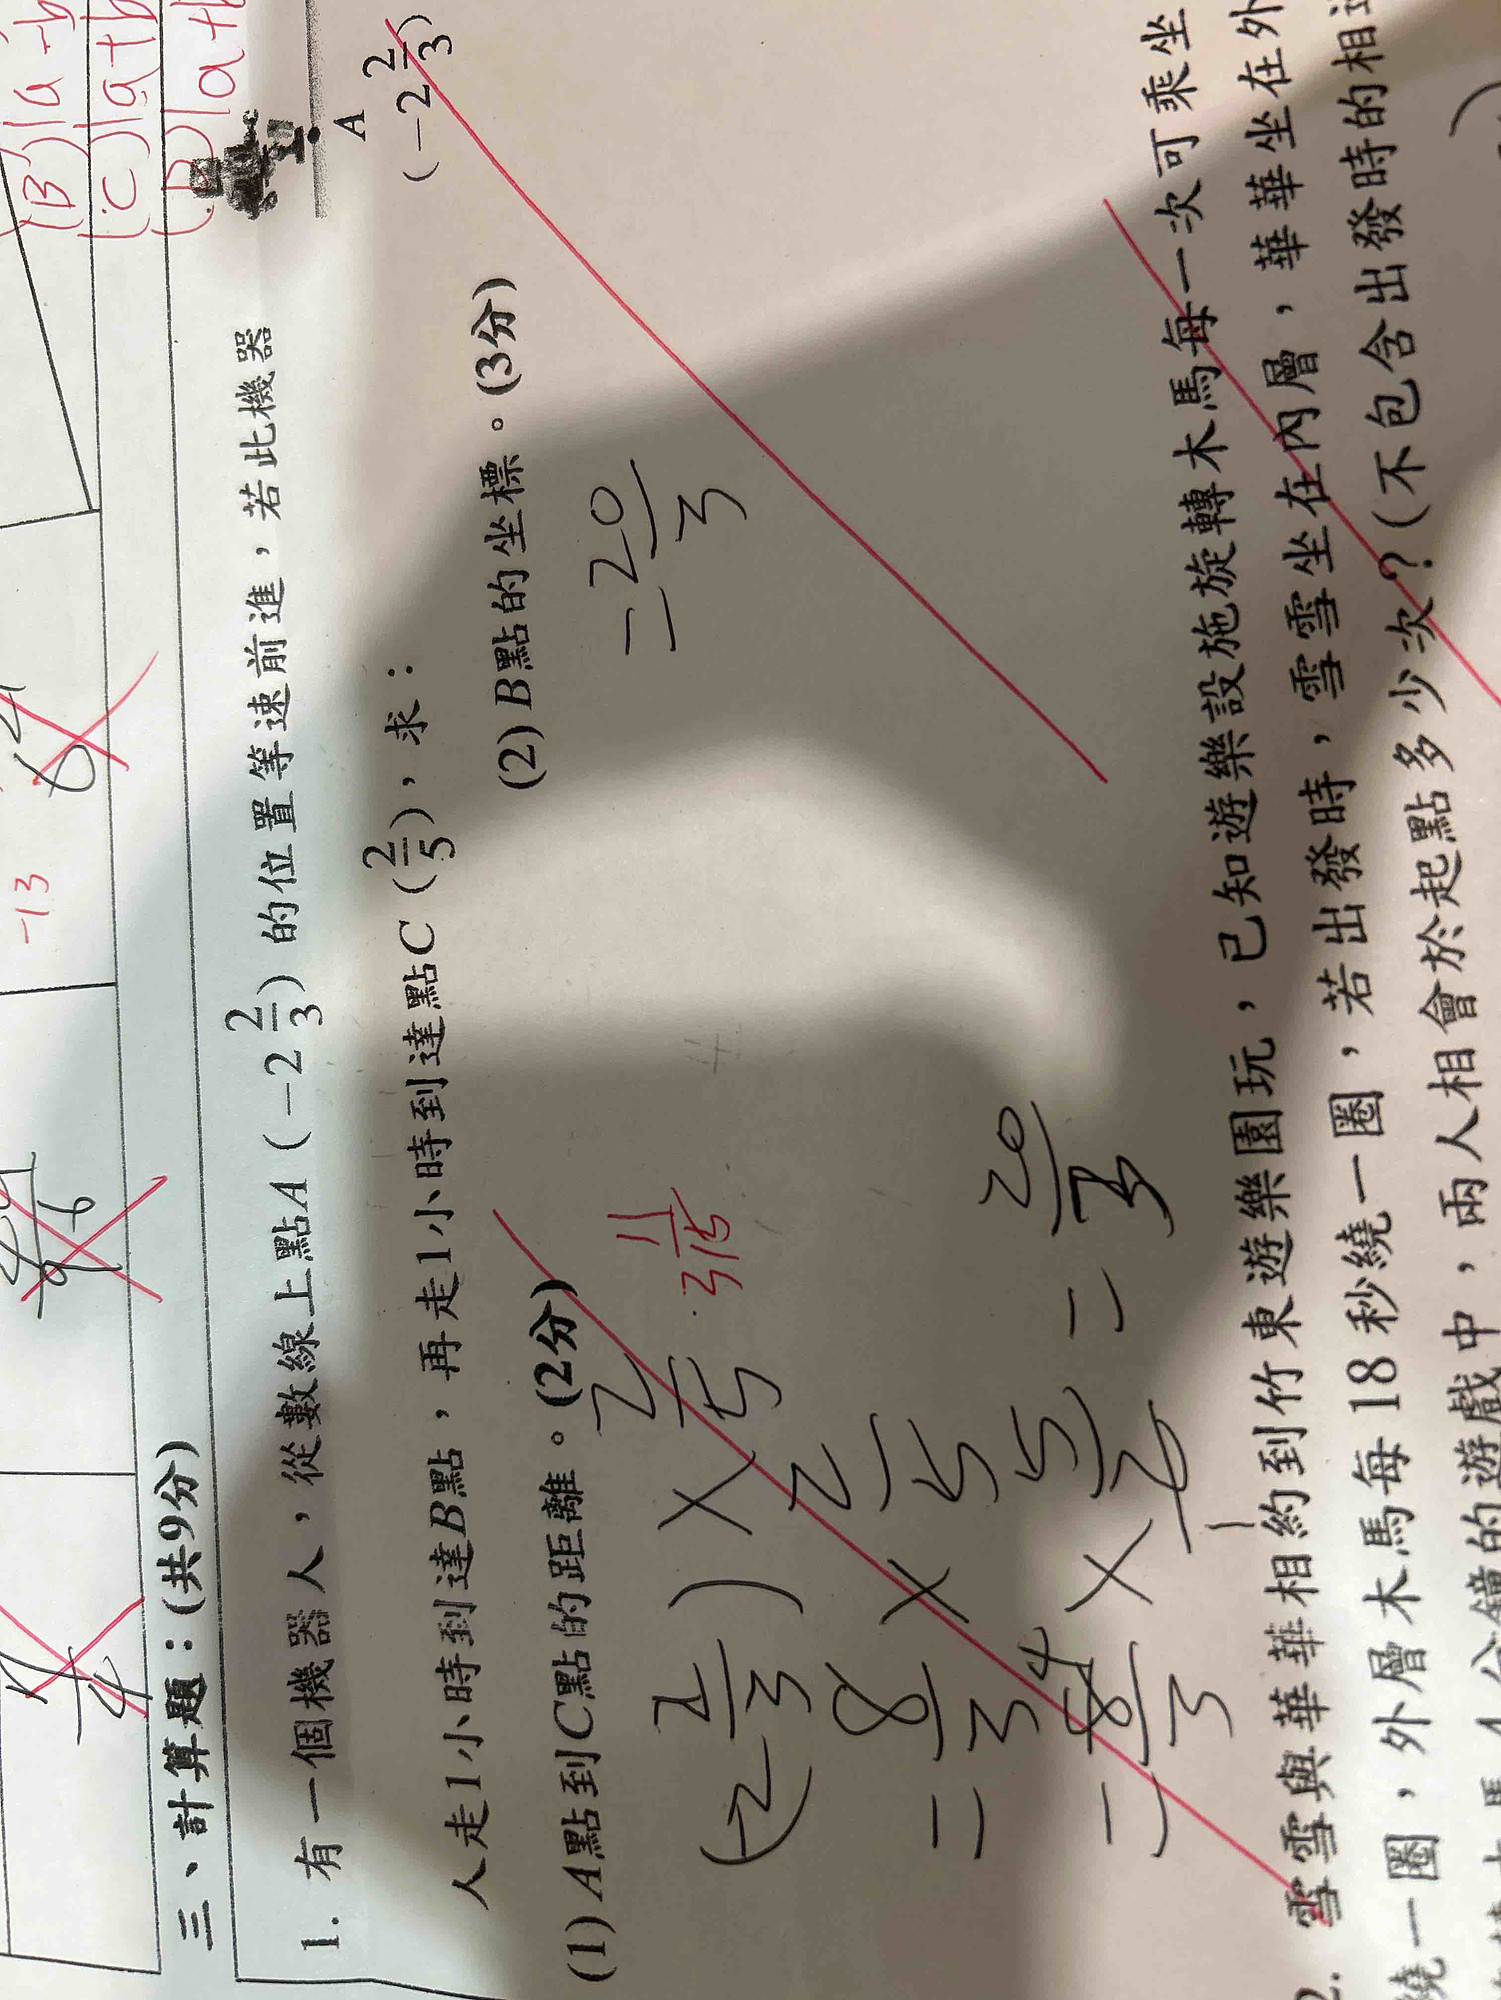 (B)|a-b
(C)|a+b
(D)|a+b
-13
三、計算題：(共9分)
1. 有一個機器人，從數線上點A(-2 2/3)的位置等速前進，若此機器
人走1小時到達B點，再走1小時到達點C(2/5)，求：
A
(-2 2/3)
(1) A點到C點的距離。(2分)
(2) B點的坐標。(3分)
(2 2/3) × 2/5
3 11/15
= 8/3 × 2/5
= 8/3 × 5/2 = 20/3
4
1
= 20/3
2. 雪雪與華華相約到竹東遊樂園玩，已知遊樂設施旋轉木馬每一次可乘坐
繞一圈，外層木馬每18秒繞一圈，若出發時，雪雪坐在內層，華華坐在外
分鐘的遊戲中，兩人相會於起點多少次？(不包含出發時的相